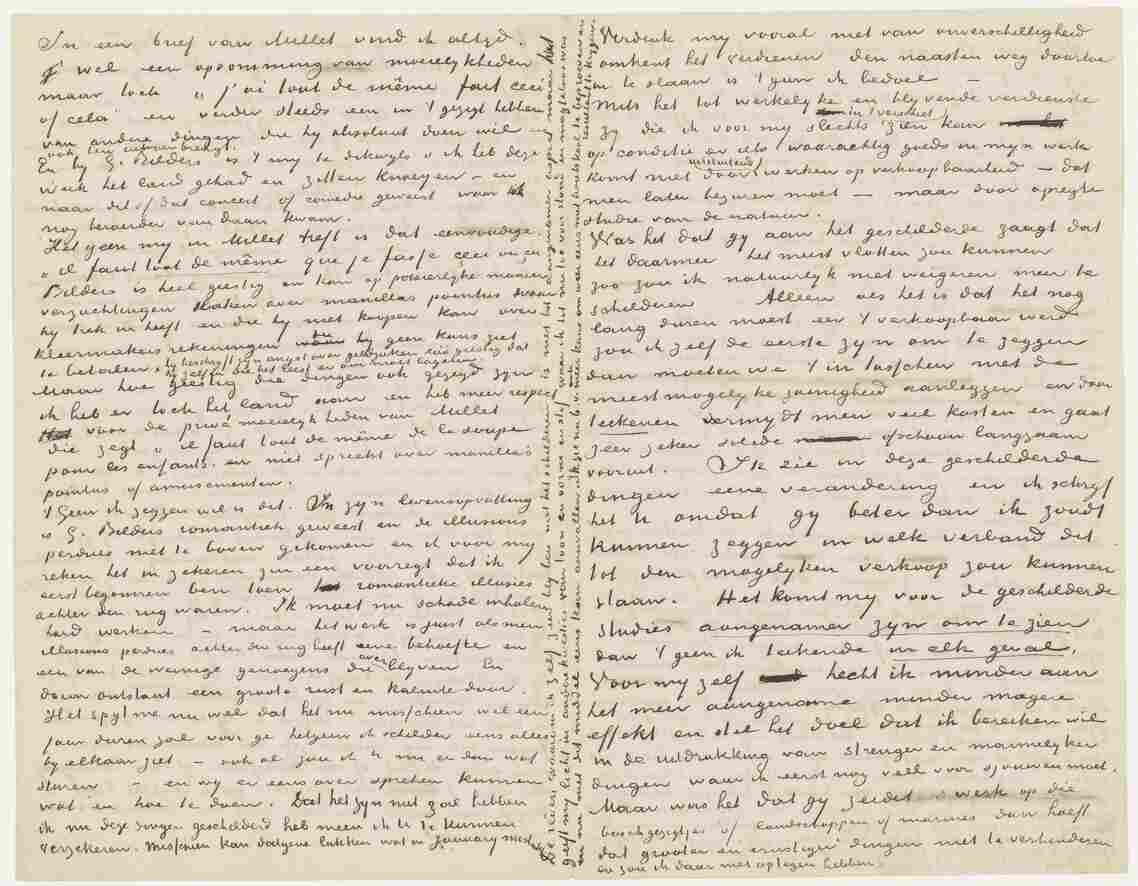 In een brief van Millet vind ik altijd.
wel een opsomming van moeielykheden
maar toch „j'ai tout de même fait ceci
of cela" en verder steeds een in 't gezigt hebben
van andere dingen die hy absoluut doen wil en
ook ten uitvoer brengt.
En by G. Bilders is 't my te dikwyls „ik heb deze
week het land gehad en zitten knoeyen – en
naar dit of dat concert of comedie geweest waar ik
nog beroerder van daan kwam.
Hetgeen my in Millet treft is dat eenvoudige.
„il faut tout de même que je fasse ceci ou
Bilders is heel geestig en kan op potsierlyke manier
verzuchtingen slaken over manillas pointus waar
hy trek in heeft en die hy niet koopen kan over
kleermakers rekeningen die hy geen kans ziet
te betalen. Hy beschryft zyn angst over geldzaken zoo geestig dat
hy zelf en die het leest er om moet lagchen.
Maar hoe geestig die dingen ook gezegd zyn
ik heb er toch het land aan en heb meer respect
voor de privé moeielykheden van Millet
die zegt „il faut tout de même de la soupe
pour les enfants. en niet spreekt over manilla's
pointus of amusementen.
't Geen ik zeggen wil is dit. In zyn levensopvatting
is G. Bilders romantiek geweest en de illusions
perdues niet te boven gekomen en ik voor my
reken het in zekeren zin een voorregt dat ik
eerst begonnen ben toen romantieke illusies
achter den rug waren. Ik moet nu schade inhalen
hard werken – maar het werk is juist als men
illusions perdues achter den rug heeft eene behoefte en
een van de weinige genoegens die over blyven En
daar ontstaat een groote rust en kalmte door.
Het spyt me nu wel dat het nu misschien wel een
jaar duren zal voor ge hetgeen ik schilder eens alles
by elkaar ziet – ook al zou ik U nu en dan wat
sturen – en wy er eens over spreken kunnen
wat en hoe te doen. Dat het zyn nut zal hebben
ik nu deze dingen geschilderd heb meen ik U te kunnen
verzekeren. Misschien kan datgene lukken wat in January mislukte
De reden waarom ik zelf zeer bly ben met het schilderen is niet het aangenamer aspect maar
geeft my licht in andre kwesties van toon en vorm en stof waar ik tot nu toe voor stond en magteloos was
Verdenk my vooral niet van onverschilligheid
omtrent het verdienen den naasten weg daartoe
in te slaan is 't geen ik bedoel –
Mits het tot werkelyke en blyvende verdienste
zy die ik voor my slechts in 't verschiet zien kan
op conditie er iets waarachtig goeds in myn werk
komt niet door uitsluitend werken op verkoopbaarheid – dat
men later bezuren moet – maar door opregte
studie van de natuur.
Was het dat gy aan het geschilderde zaagt dat
het daarmee het meest vlotten zou kunnen
zoo zou ik natuurlyk niet weigeren meer te
schilderen Alleen als het is dat het nog
lang duren moest eer 't verkoopbaar werd
zou ik zelf de eerste zyn om te zeggen
dan moeten we 't intusschen met de
meestmogelyke zuinigheid aanleggen en door
teekenen vermydt men veel kosten en gaat
zeer zeker solide ofschoon langzaam
vooruit. Ik zie in deze geschilderde
dingen eene verandering en ik schryf
het U omdat gy beter dan ik zoudt
kunnen zeggen in welk verband dit
tot den mogelyken verkoop zou kunnen
staan. Het komt my voor de geschilderde
studies aangenamer zyn om te zien
dan 't geen ik teekende in elk geval.
Voor my zelf hecht ik minder aan
het meer aangename minder magere
effekt en stel het doel dat ik bereiken wil
in de uitdrukking van strenger en mannelyker
dingen waar ik eerst nog veel voor sjouwen moet.
Maar was het dat gy zeidet werk op die
boschgezigtjes of landschappen of marines dan hoeft
dat grooter en ernstiger dingen niet te verhinderen
en zou ik daar niets op tegen hebben.